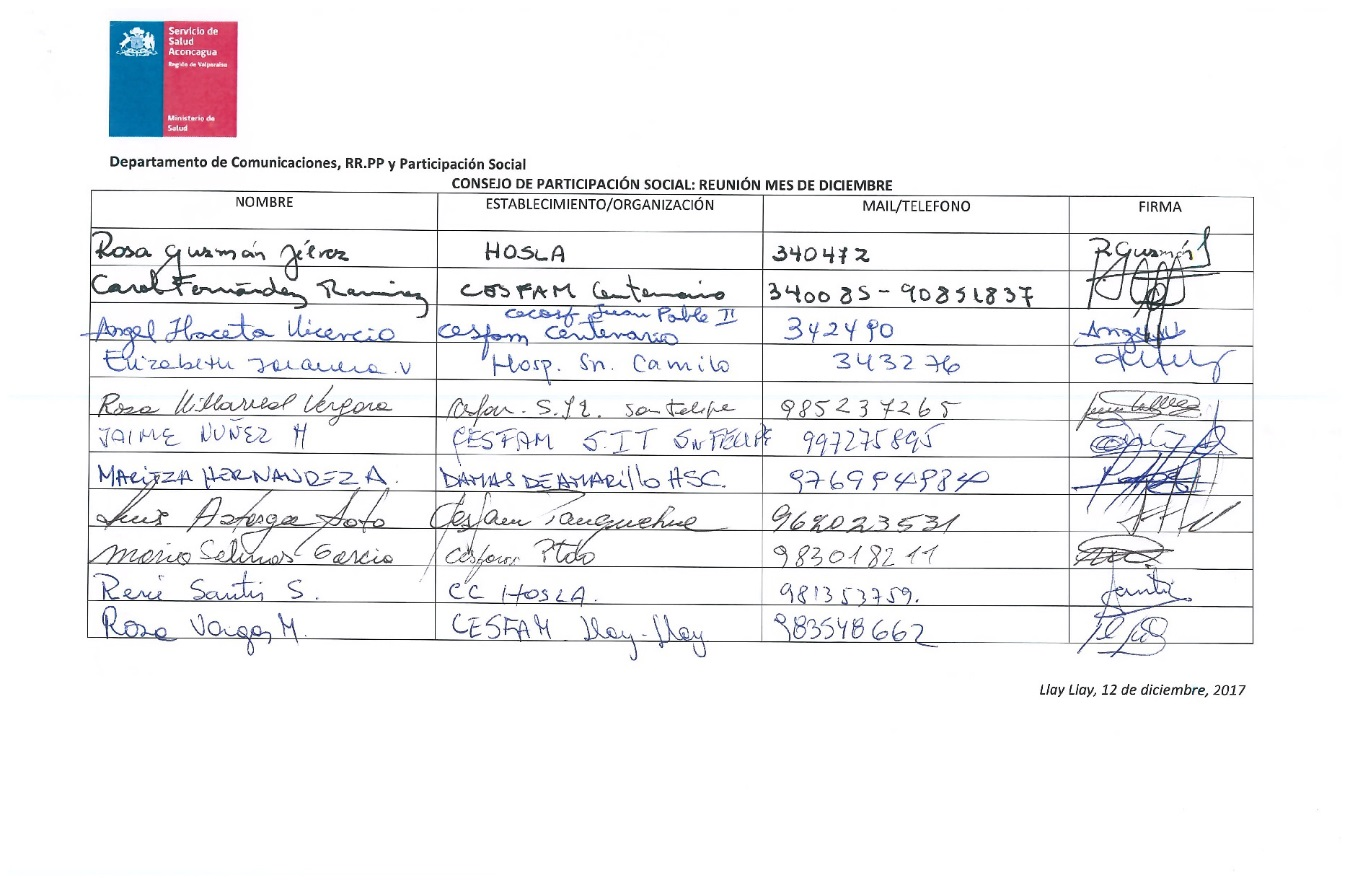 Servicio de
Salud
Aconcagua
Región de Valparaíso
Ministerio de
Salud
Departamento de Comunicaciones, RR.PP y Participación Social
CONSEJO DE PARTICIPACIÓN SOCIAL: REUNIÓN MES DE DICIEMBRE
NOMBRE ESTABLECIMIENTO/ORGANIZACIÓN MAIL/TELEFONO FIRMA
Rosa Guzmán Jérez HOSLA 340472 R.Guzmán J
Carol Fernández Ramirez CESFAM Centenario 340085-90851837
cecosf Juan Pablo II
Angel Vicencio Cesfam Centenario 342490
Elizabeth V Hosp. Sn. Camilo 343276
Rosa Villarreal Vergara San Felipe 985237265
JAIME NUÑEZ M CESFAM S.IT Sn FELIPE 997275895
MARITZA HERNANDEZ A. DAMAS DE AMARillo HSC.
Luis Astorga Soto Cesfam Panquehue 962023531
Mario Salinas Garcia Cesfam Ptdo 983018211
René Santis S. CC HOSLA. 981353759. Santis
Rosa Vargas M. CESFAM Llay-Llay 983548662
Llay Llay, 12 de diciembre, 2017